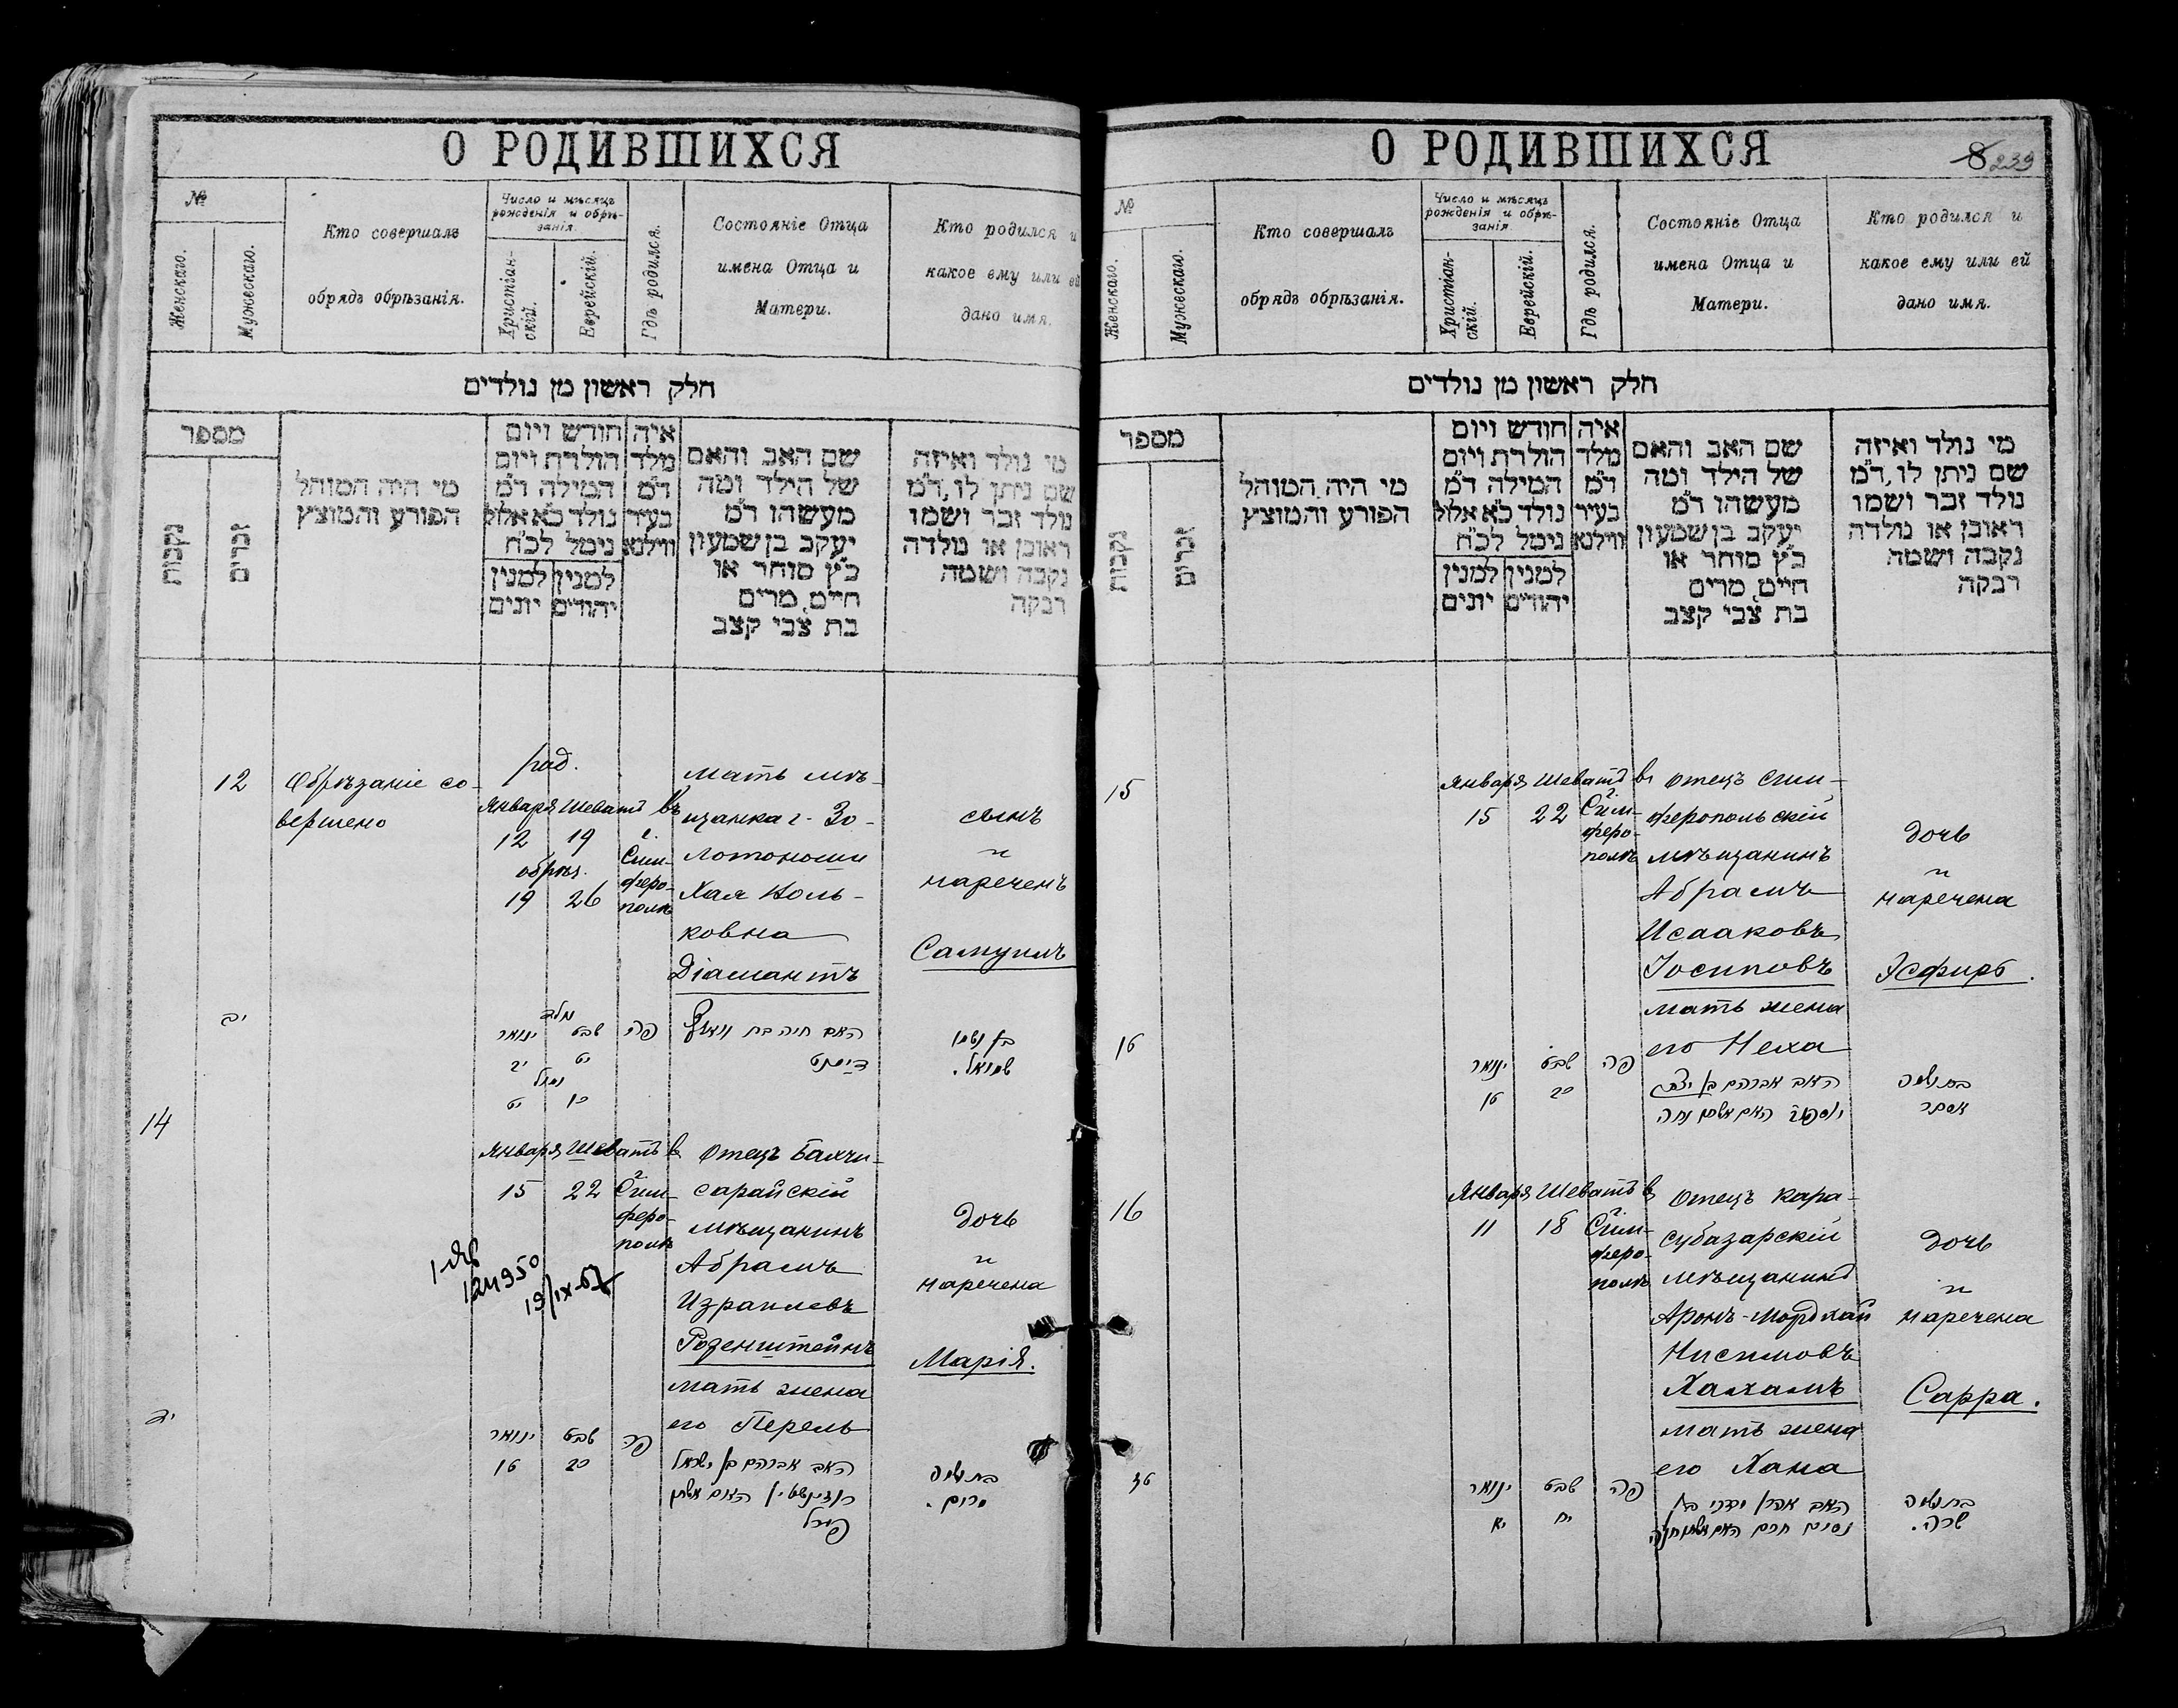 О РОДИВШИХСЯ
№
Женскаго.
Мужескаго.
Кто совершалъ
обрядъ обрѣзанія.
Число и мѣсяцъ
рожденія и обрѣ-
занія.
Христіан-
скій.
Еврейскій.
Гдѣ родился.
Состояніе Отца
имена Отца и
Матери.
Кто родился и
какое ему или ей
дано имя.
חלק ראשון מן נולדים
מספר
נקבות
זכרים
מי היה המוהל
הפורע והמוצץ
חודש ויום
הולדת ויום
המילה ד״מ
נולד כ״א אלול
נימל לכ״ח
למנין יהודים
למנין יונים
איה
מלד
ד״מ
בעיר
ווילנא
שם האב והאם
של הילד ומה
מעשהו ד״מ
יעקב בן שמעון
כ״ץ סוחר או
חייט מרים
בת צבי קצב
מי נולד ואיזה
שם ניתן לו, ד״מ
נולד זכר ושמו
ראובן או נולדה
נקבה ושמה
רבקה
12
Обрѣзаніе со-
вершено
рад.
Января Шеватъ
12 19
обрѣз.
19 26
въ
г.
Сим-
феро-
полѣ
мать мѣ-
щанка г. Зо-
лотоноши
Хая Воль-
ковна
Діамантъ
сынъ
и
нареченъ
Самуилъ
יב
ינואר שבט
יב יט
יט כו
פה
האם חיה בת
שמואל.
14
Января Шеватъ
15 22
в
г.
Сим-
феро-
полѣ
отецъ Бахчи-
сарайскій
мѣщанинъ
Абрамъ
Израилевъ
Розенштейнъ
мать жена
его Перель
дочь
и
наречена
Марія.
124950
19/IX-67
יד
ינואר שבט
טו כב
פה
האב אברהם בן ישראל
רוזינשטיין האם אשתו
פערל
מרים.
О РОДИВШИХСЯ
8 239
№
Женскаго.
Мужескаго.
Кто совершалъ
обрядъ обрѣзанія.
Число и мѣсяцъ
рожденія и обрѣ-
занія.
Христіан-
скій.
Еврейскій.
Гдѣ родился.
Состояніе Отца
имена Отца и
Матери.
Кто родился и
какое ему или ей
дано имя.
חלק ראשון מן נולדים
מספר
נקבות
זכרים
מי היה המוהל
הפורע והמוצץ
חודש ויום
הולדת ויום
המילה ד״מ
נולד כ״א אלול
נימל לכ״ח
למנין יהודים
למנין יונים
איה
מלד
ד״מ
בעיר
ווילנא
שם האב והאם
של הילד ומה
מעשהו ד״מ
יעקב בן שמעון
כ״ץ סוחר או
חייט מרים
בת צבי קצב
מי נולד ואיזה
שם ניתן לו, ד״מ
נולד זכר ושמו
ראובן או נולדה
נקבה ושמה
רבקה
15
Января Шеватъ
15 22
в
г.
Сим-
феро-
полѣ
отецъ Сим-
феропольскій
мѣщанинъ
Абрамъ
Исааковъ
Іосиповъ
мать жена
его Неха
дочь
и
наречена
Эсфирь.
טו
ינואר שבט
טו כב
פה
האב אברהם בן יצחק
האם אשתו נחה
אסתר
16
Января Шеватъ
11 18
в
г.
Сим-
феро-
полѣ
отецъ Кара-
субазарскій
мѣщанинъ
Аронъ-Мордхай
Нисимовъ
Хахамъ
мать жена
его Хана
дочь
и
наречена
Сарра.
טז
ינואר שבט
יא יח
פה
האב אהרן מרדכי בן
נסים חכם האם אשתו חנה
שרה.